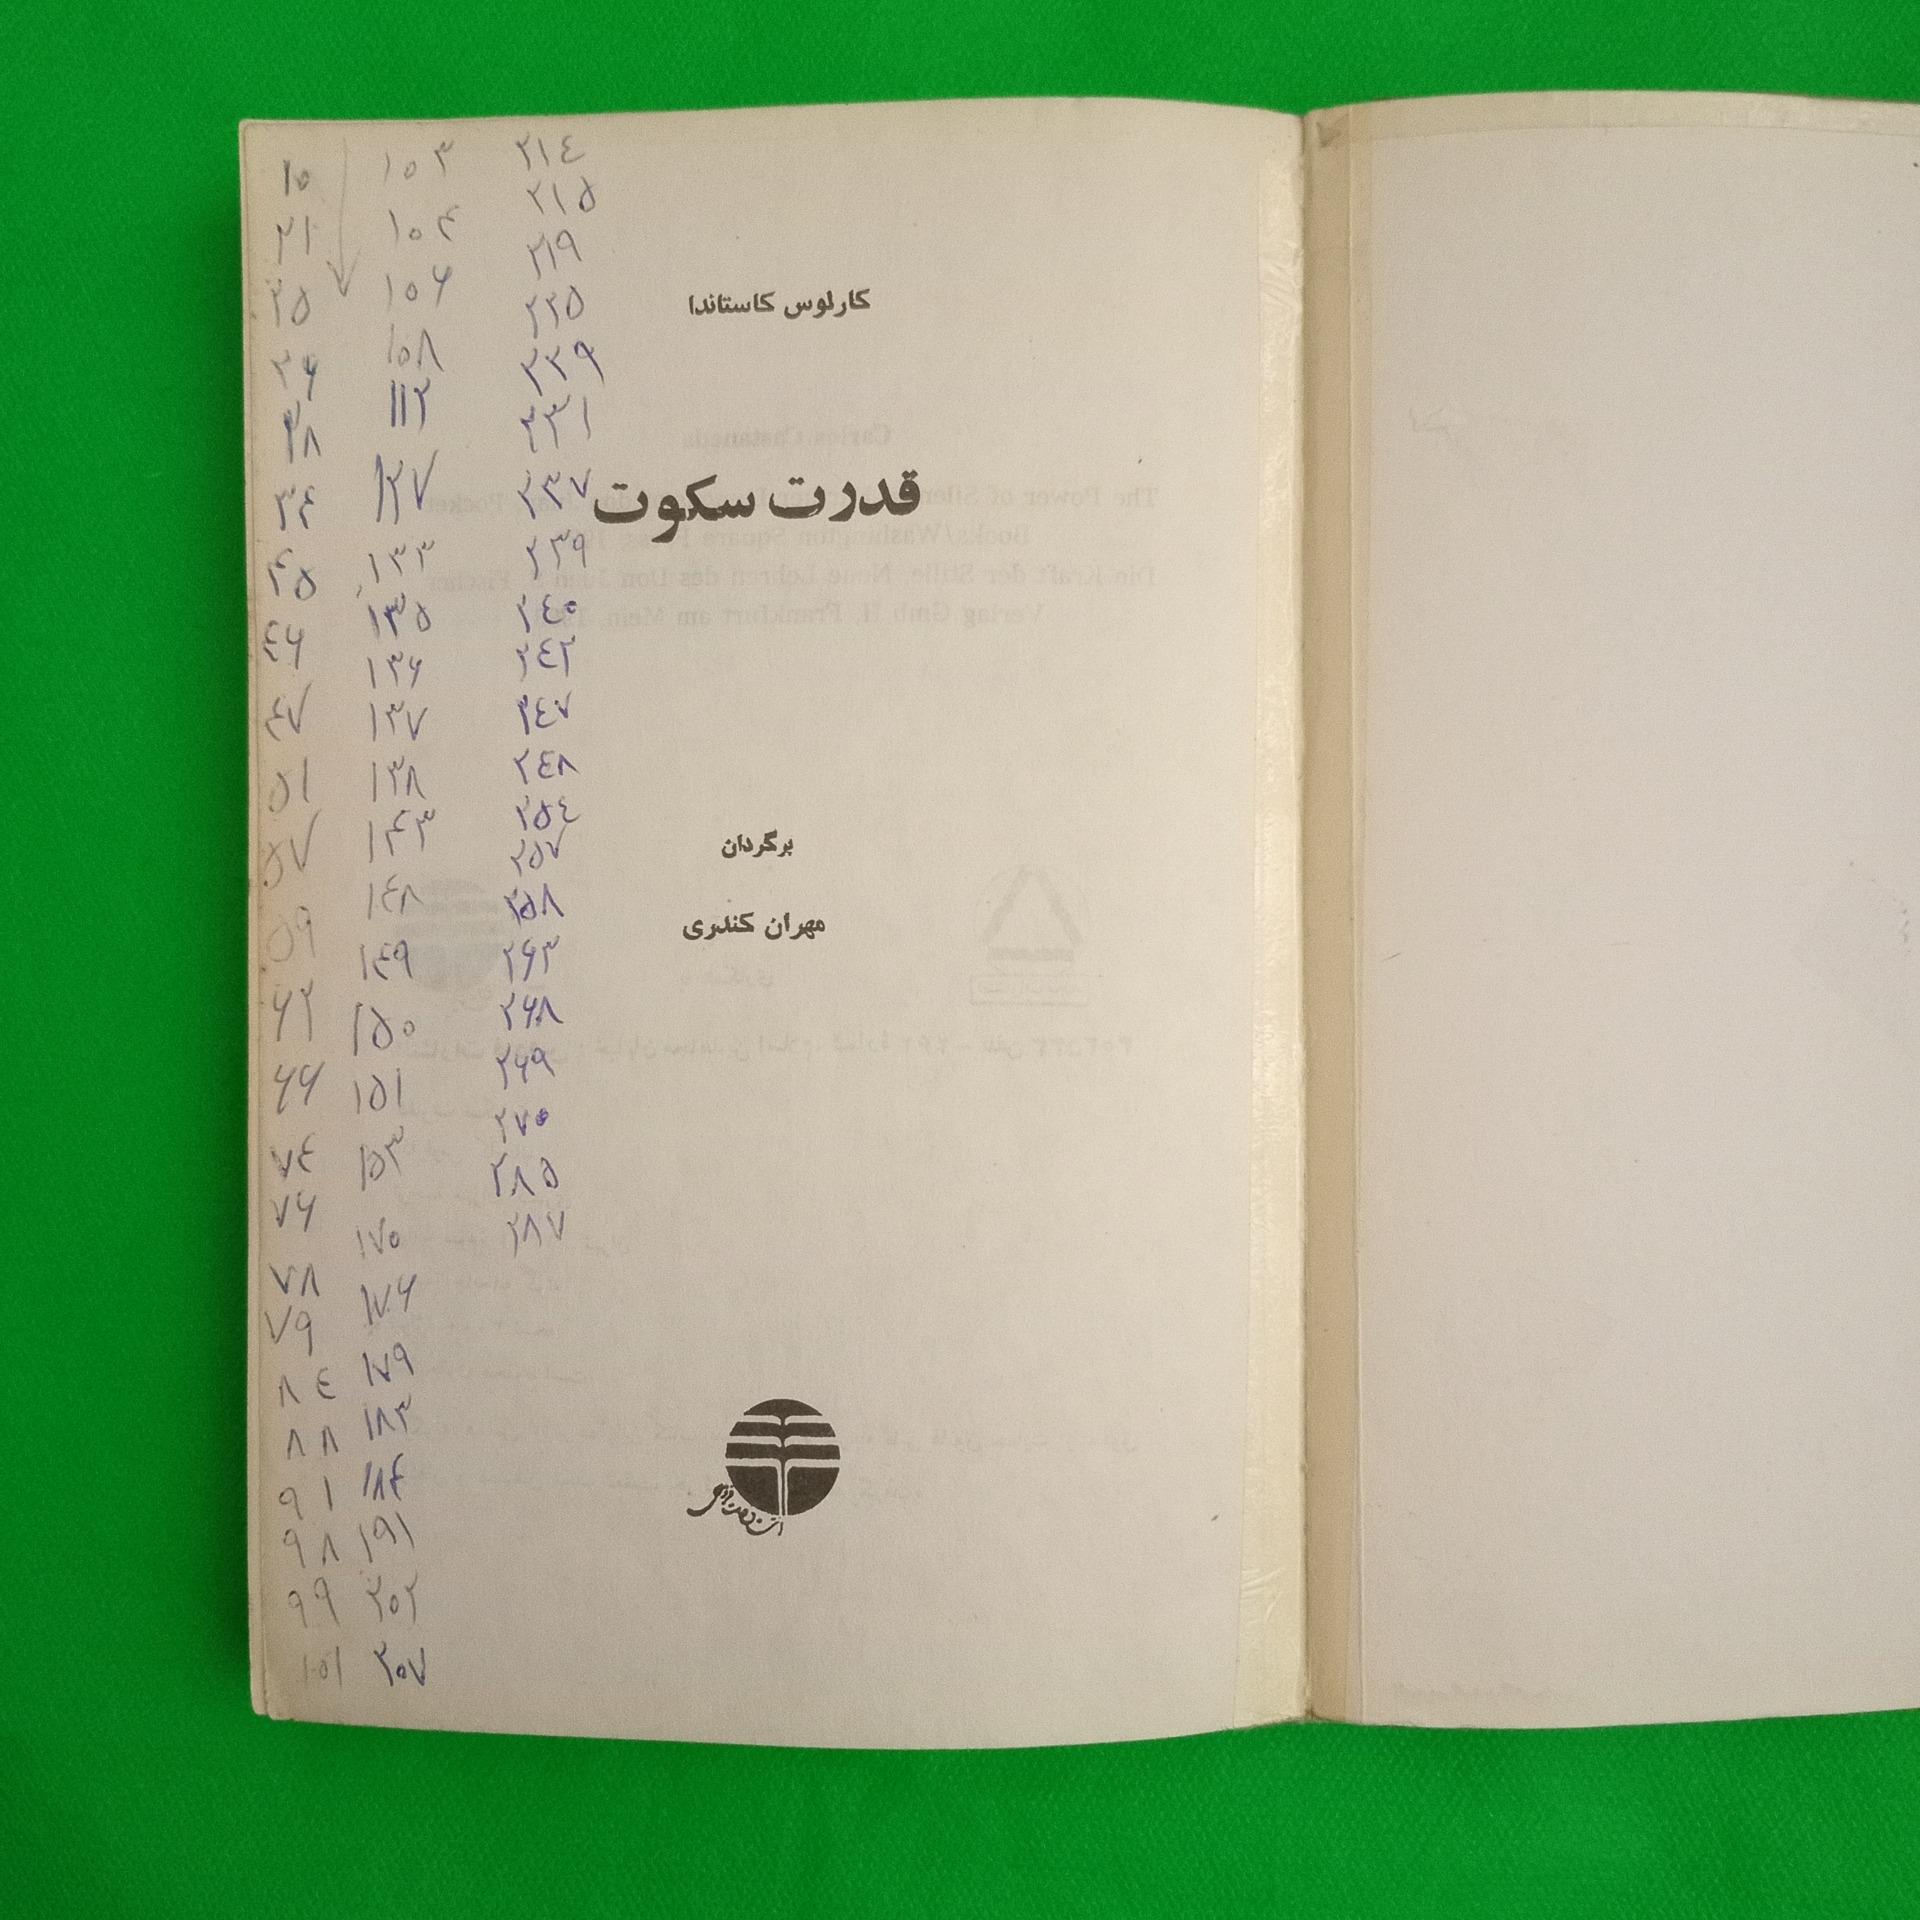 کارلوس کاستاندا
قدرت سکوت
برگردان
مهران کندری
۱۰
۲۱
۲۵
۳۶
۳۸
۳۴
۴۵
۴۶
۴۷
۵۱
۵۷
۵۹
۶۲
۶۶
۷۴
۷۶
۷۸
۷۹
۸۴
۸۸
۹۱
۹۸
۹۹
۱۰۱
۱۰۳
۱۰۴
۱۰۶
۱۰۸
۱۱۲
۱۲۷
۱۳۳
۱۳۵
۱۳۶
۱۳۷
۱۳۸
۱۴۳
۱۴۸
۱۴۹
۱۵۰
۱۵۱
۱۵۳
۱۷۰
۱۷۶
۱۷۹
۱۸۳
۱۸۴
۱۹۱
۲۰۲
۲۰۷
۲۱۴
۲۱۵
۲۱۹
۲۲۵
۲۲۹
۲۳۱
۲۳۷
۲۳۹
۲۴۰
۲۴۲
۲۴۷
۲۴۸
۲۵۴
۲۵۷
۲۵۸
۲۶۳
۲۶۸
۲۶۹
۲۷۰
۲۸۵
۲۸۷